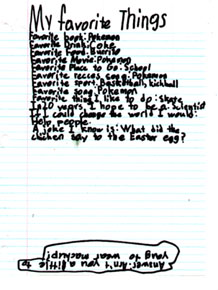 My favorite Things
Favorite book: Pokemon
Favorite Drink: Coke
Favorite Food: Burrito
Favorite Movie: Pokemon
Favorite Place to Go: School
Favorite recces game: Pokemon
Favorite sport: Basketball, kickball
Favorite song: Pokemon
Favorite thing I like to do: skate
In 20 years, I hope to be a scientist
If I could change the world I would:
Help people.
A joke I know is: What did the
chicken say to the Easter egg?
Answer: Ain't you a little to
young to wear makeup?